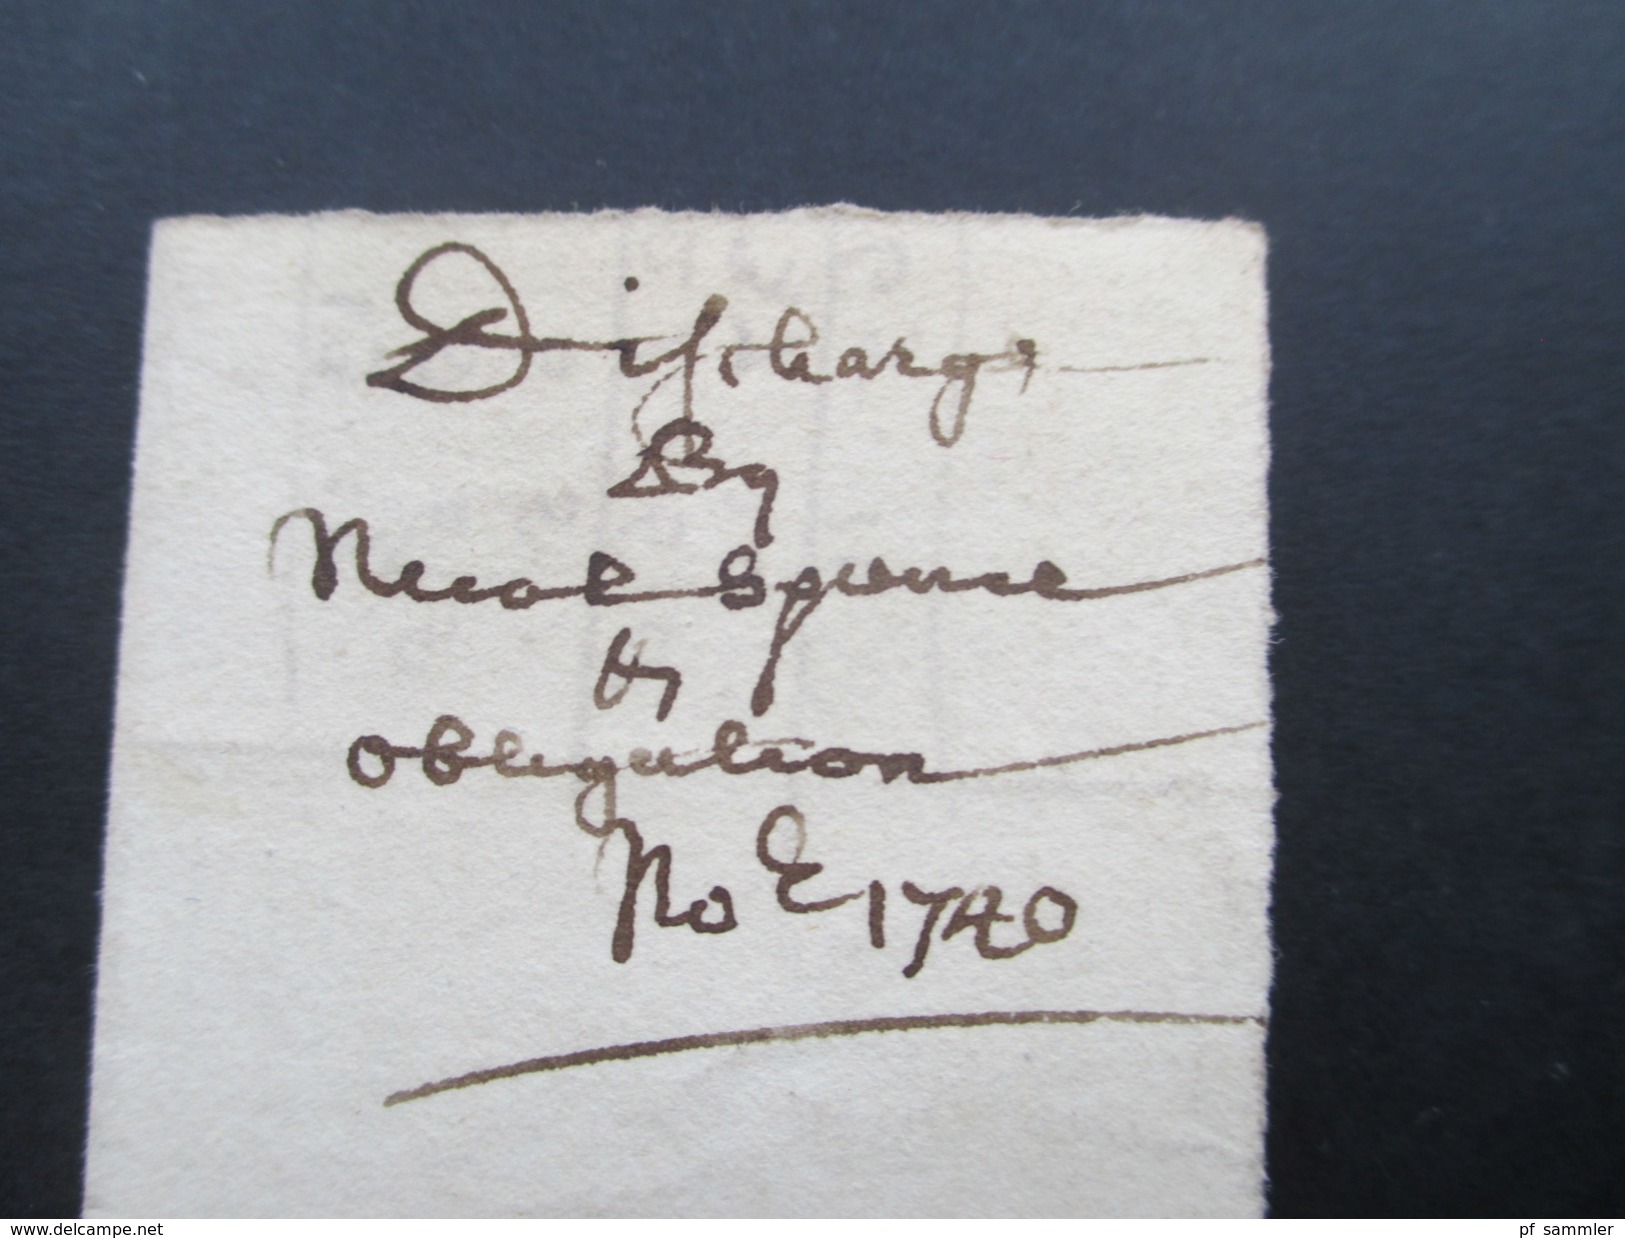 Discharge
By
Nicol Spence
&
obligation
No E 1740
www.delcampe.net
pf_sammler